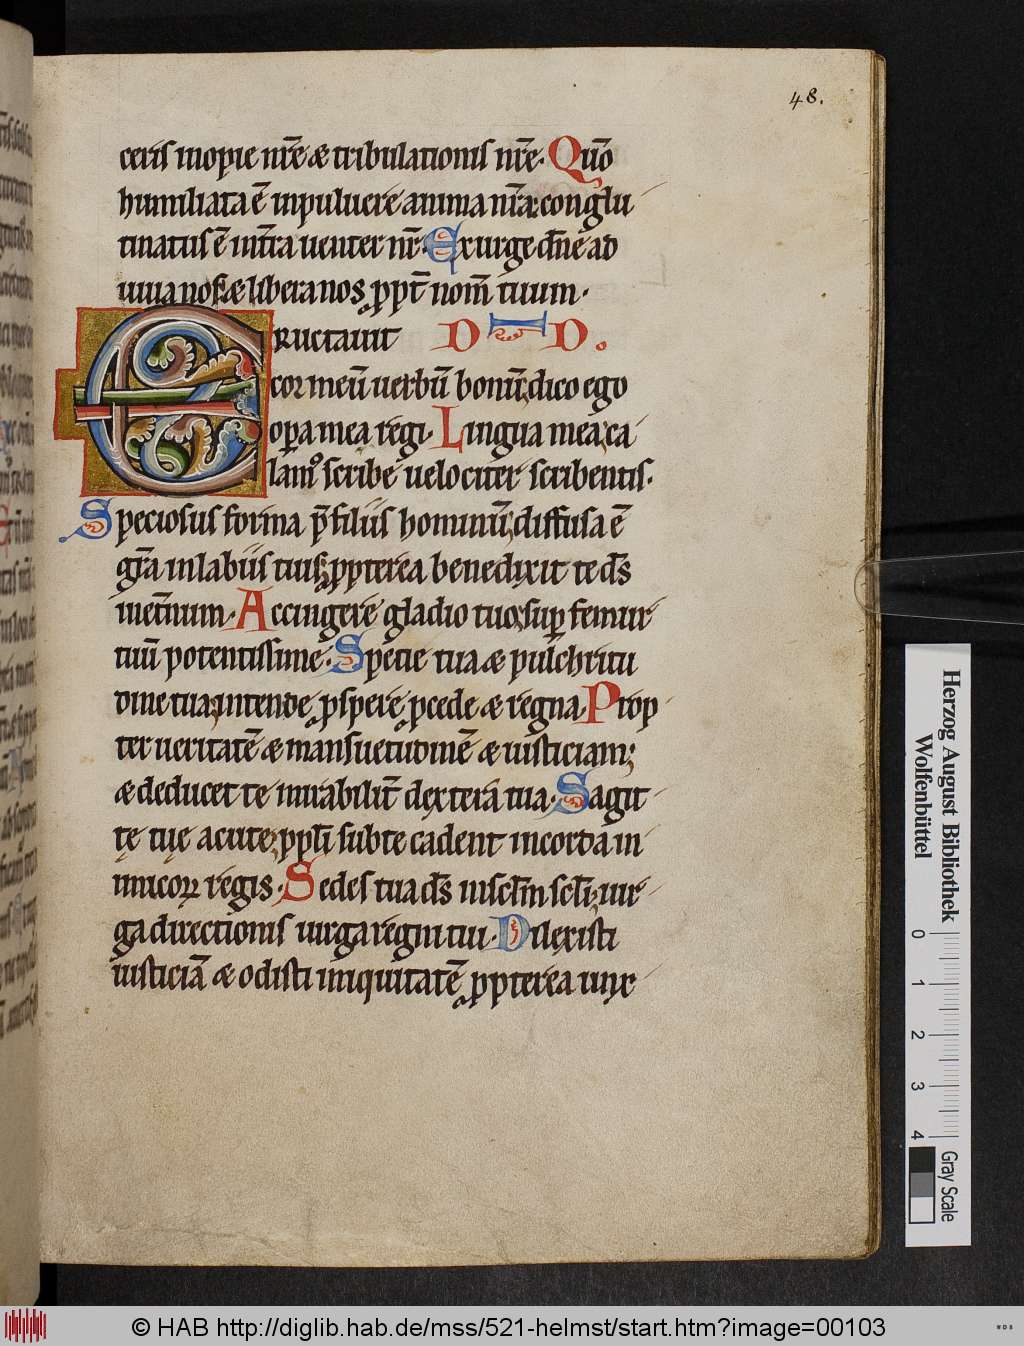 48.
ceris inopie nr̄e & tribulationis nr̄e. Qūo
humiliata ē inpuluere anima nr̄a; conglu
tinatus ē int̄ra uenter nr̄. Exurge dn̄e ad
iuua nos & libera nos ꝓpt̄ nom̄ tuum.
Eructauit D I D.
cor meū uerbū bonū; dico ego
opera mea regi. Lingua mea; ca
lam᷒ scribe uelociter scribentis.
Speciosus forma p̄ filiis hominū; diffusa ē
gr̄a inlabiis tuis; ꝓpterea benedixit te ds̄
inet̄num. Accingere gladio tuo; sup̲ femur
tuū potentissime. Specie tua & pulchritu
dine tua; intende ꝓspere ꝓcede & regna. Prop
ter ueritatē & mansuetudinē & iusticiam;
& deducet te mirabilit̄ dextera tua. Sagit
tę tuę acute; ppl̄i subte cadent incorda in
imicoꝝ regis. Sedes tua ds̄ insclm̄ scl̄i; uir
ga directionis uirga regni tui. Dilexisti
iusticiā & odisti iniquitatē ꝓpterea unx
Herzog August Bibliothek
Wolfenbüttel
0 1 2 3 4
Gray Scale
© HAB http://diglib.hab.de/mss/521-helmst/start.htm?image=00103